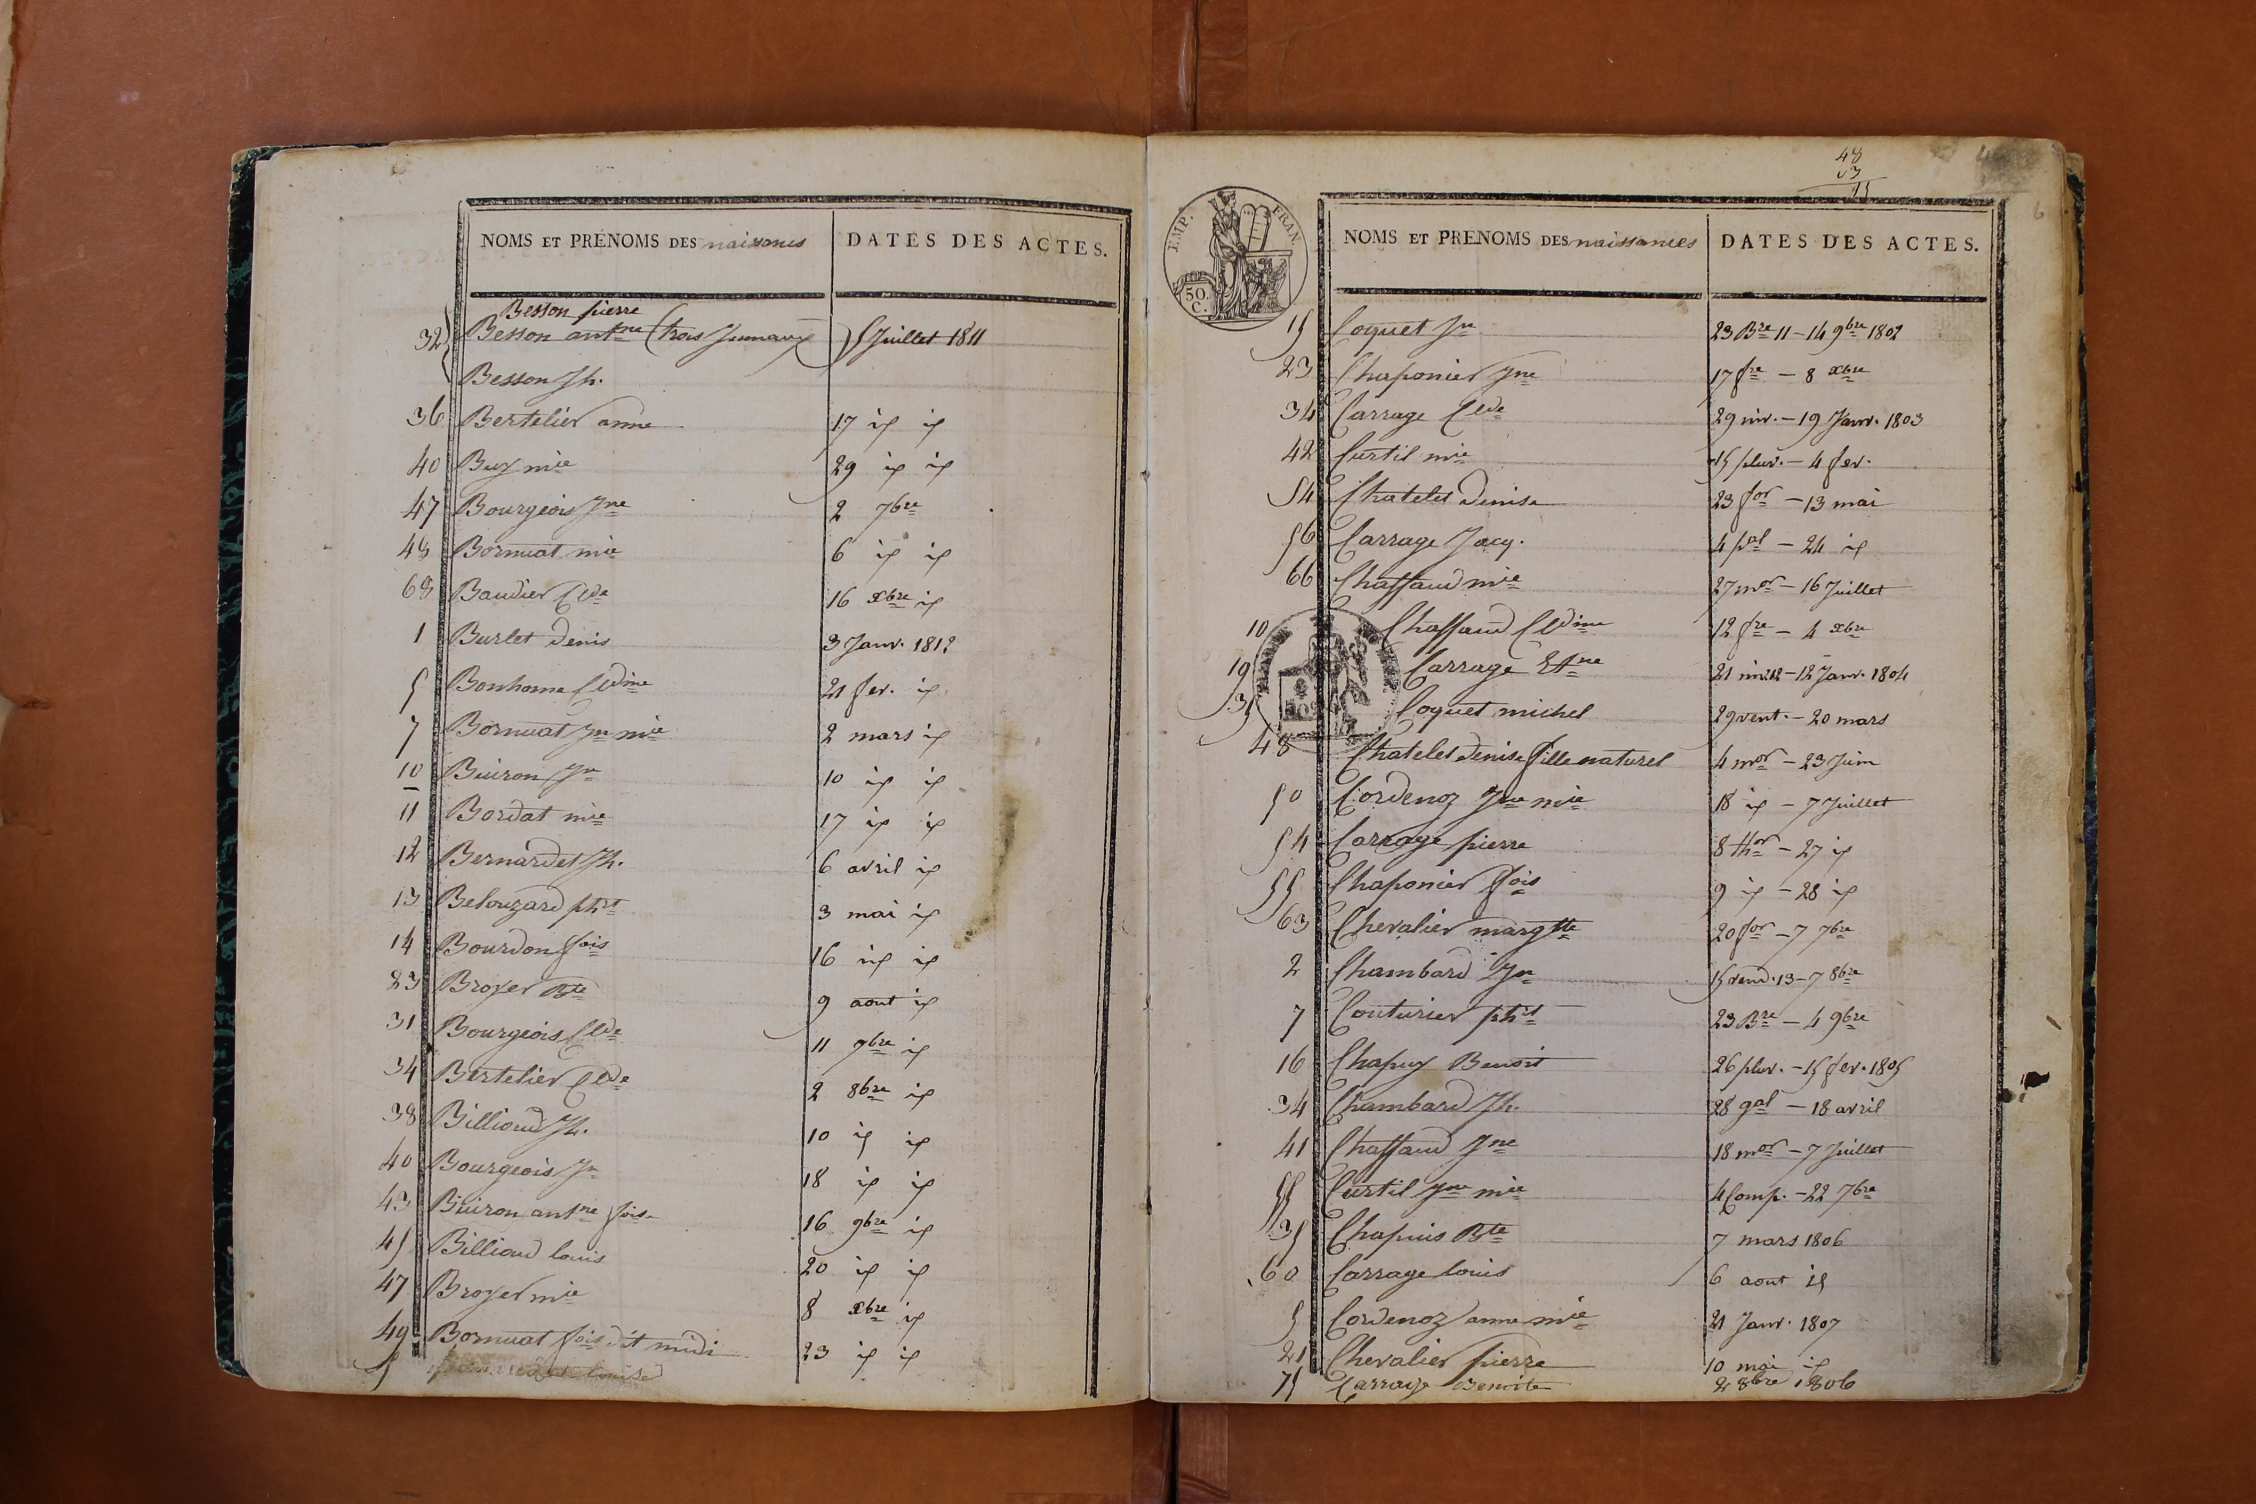 NOMS ET PRÉNOMS DES naissances DATES DES ACTES.
Besson pierre
32 Besson antne (trois Jumeaux) 5 Juillet 1811
Besson Jh.
36 Bertelier anne 17 id id
40 Buy mie 29 id id
47 Bourgeois Jne 2 7bre
48 Bornuat mie 6 id id
68 Baudier Clde 16 xbre id
1 Burlet Denis 3 Janv. 1812
5 Bonhome Cldine 21 fev. id
7 Bornuat Jn mie 2 mars id
10 Buiron Jn 10 id id
11 Bordat mie 17 id id
12 Bernardet Jh. 6 avril id
13 Belouzard phte 3 mai id
14 Bourdon fois 16 id id
23 Broyer Bte 9 aout id
31 Bourgeois Clde 11 9bre id
34 Bertelier Clde 2 8bre id
38 Billioud Jh. 10 id id
40 Bourgeois Jn 18 id id
43 Buiron antne fois 16 9bre id
45 Billioud louis 20 id id
47 Broyer mie 8 xbre id
49 Bornuat fois dit midi 23 id id
5
48
6
EMP. FRAN.
50. C.
NOMS ET PRENOMS DES naissances DATES DES ACTES.
15 Coquet Jn 23 Bre 11 - 14 9bre 1802
23 Chaponier Jne 17 fre - 8 xbre
34 Carrage Clde 29 niv. - 19 Janv. 1803
42 Curtil mie 15 pluv. - 4 fev.
54 Chatelet Denise 23 for - 13 mai
56 Carrage Jacq. 4 pal - 24 id
66 Chaffaud mie 27 mor - 16 Juillet
10 Chaffaud Cldine 12 fre - 4 xbre
19 Carrage Etne 21 niv. 12 - 12 Janv. 1804
35 Coquet michel 29 vent. - 20 mars
48 Chatelet Denise fille naturel 4 mor - 23 Juin
50 Cordenoz Jne mie 18 id - 7 Juillet
54 Carrage pierre 8 thor - 27 id
55 Chaponier fois 9 id - 28 id
63 Chevalier margtte 20 for - 7 7bre
2 Chambard Jn 15 vend. 13 - 7 8bre
7 Couturier phte 23 Bre - 4 9bre
16 Chapuy Benoit 26 pluv. - 15 fev. 1805
34 Chambard Jh. 28 gal - 18 avril
41 Chaffaud Jne 18 mor - 7 Juillet
55 Curtil Jne mie 4 Comp. - 22 7bre
35 Chapuis Bte 7 mars 1806
60 Carrage louis 6 aout id
5 Cordenoz anne mie 21 Janv. 1807
21 Chevalier pierre 10 mai id
75 Carrage Benoite 2 8bre 1806